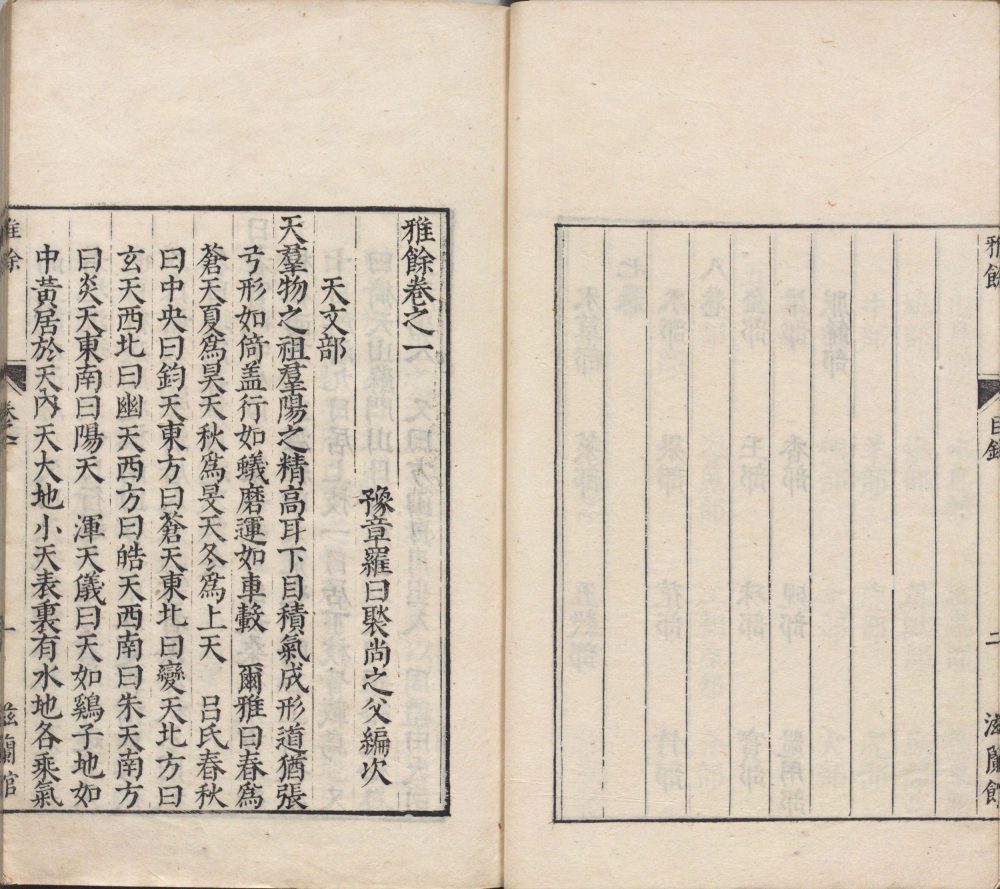 雅餘
目錄
二
滋蘭館
雅餘卷之一
豫章羅曰褧尚之父編次
天文部
天羣物之祖羣陽之精高耳下目積氣成形道猶張
弓形如倚盖行如蟻磨運如車轂　爾雅曰春爲
蒼天夏爲昊天秋爲旻天冬爲上天　呂氏春秋
曰中央曰鈞天東方曰蒼天東北曰變天北方曰
玄天西北曰幽天西方曰皓天西南曰朱天南方
曰炎天東南曰陽天　渾天儀曰天如鷄子地如
中黃居於天內天大地小天表裏有水地各乘氣
雅餘
卷之一
一
滋蘭館